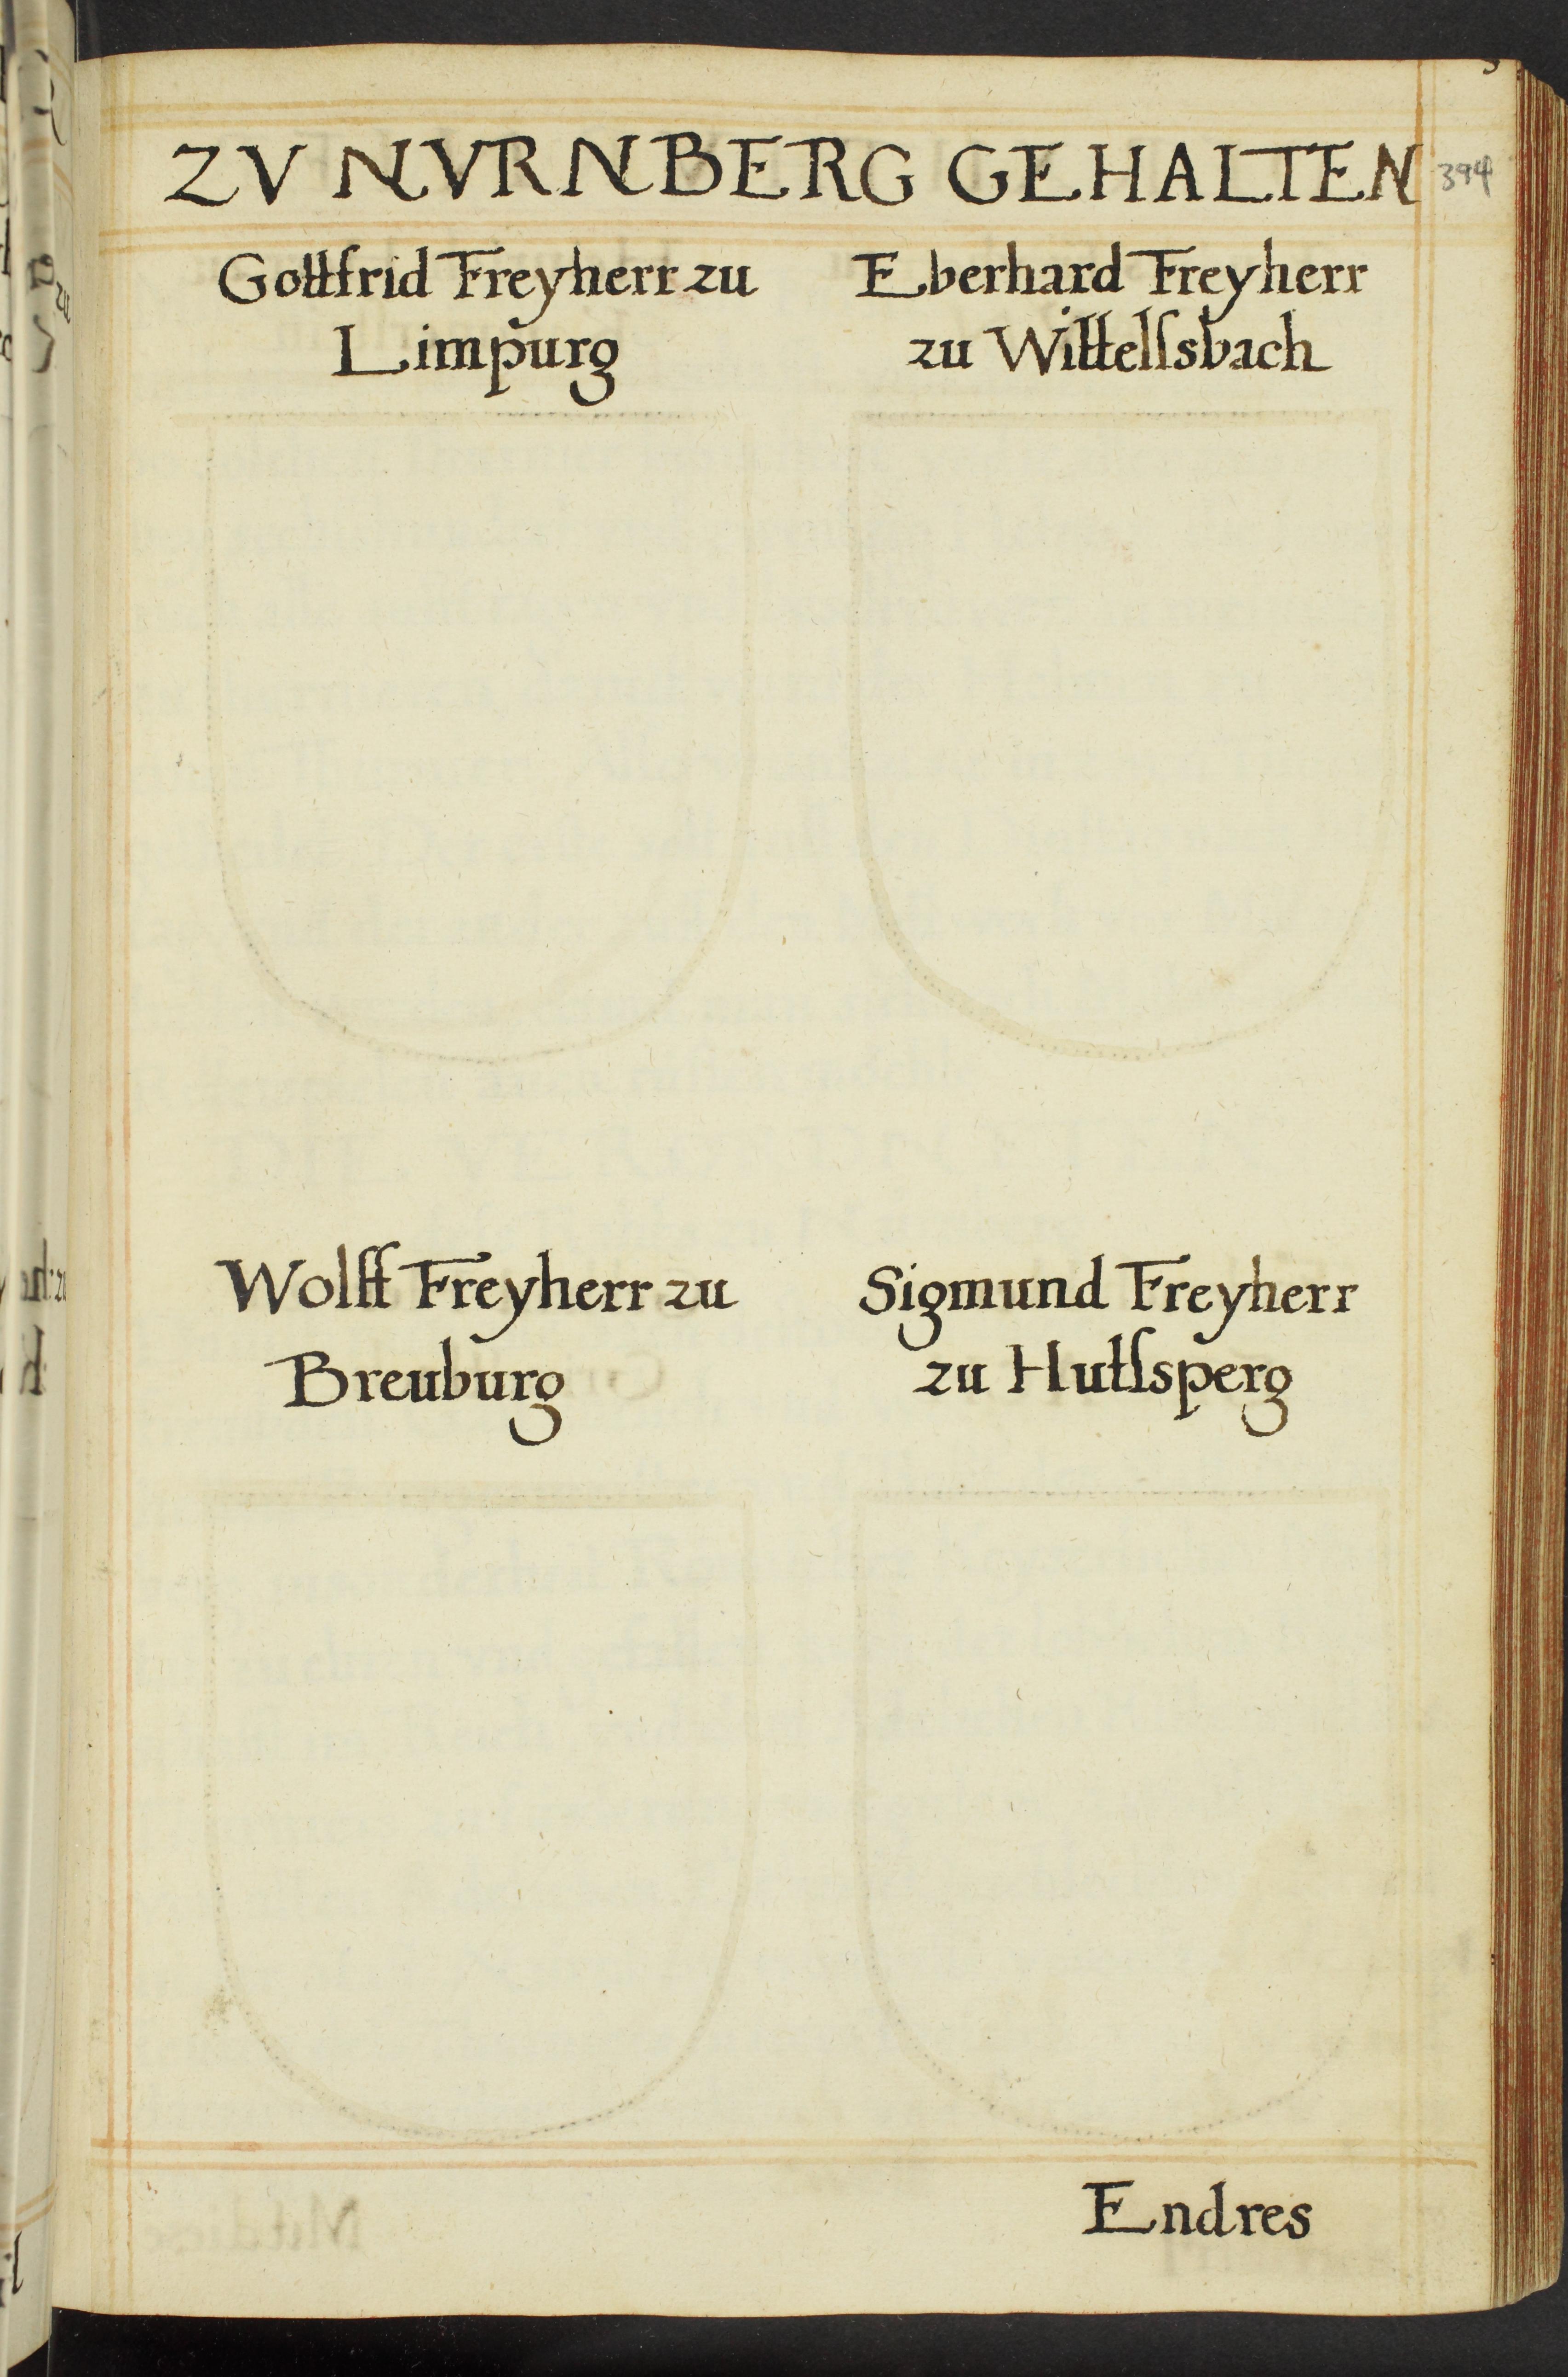 ZV NVRNBERG GEHALTEN
394
Gottfrid Freyherr zu
Limpurg
Eberhard Freyherr
zu Wittelſsbach
Wolff Freyherr zu
Breuburg
Sigmund Freyherr
zu Hutſsperg
Endres